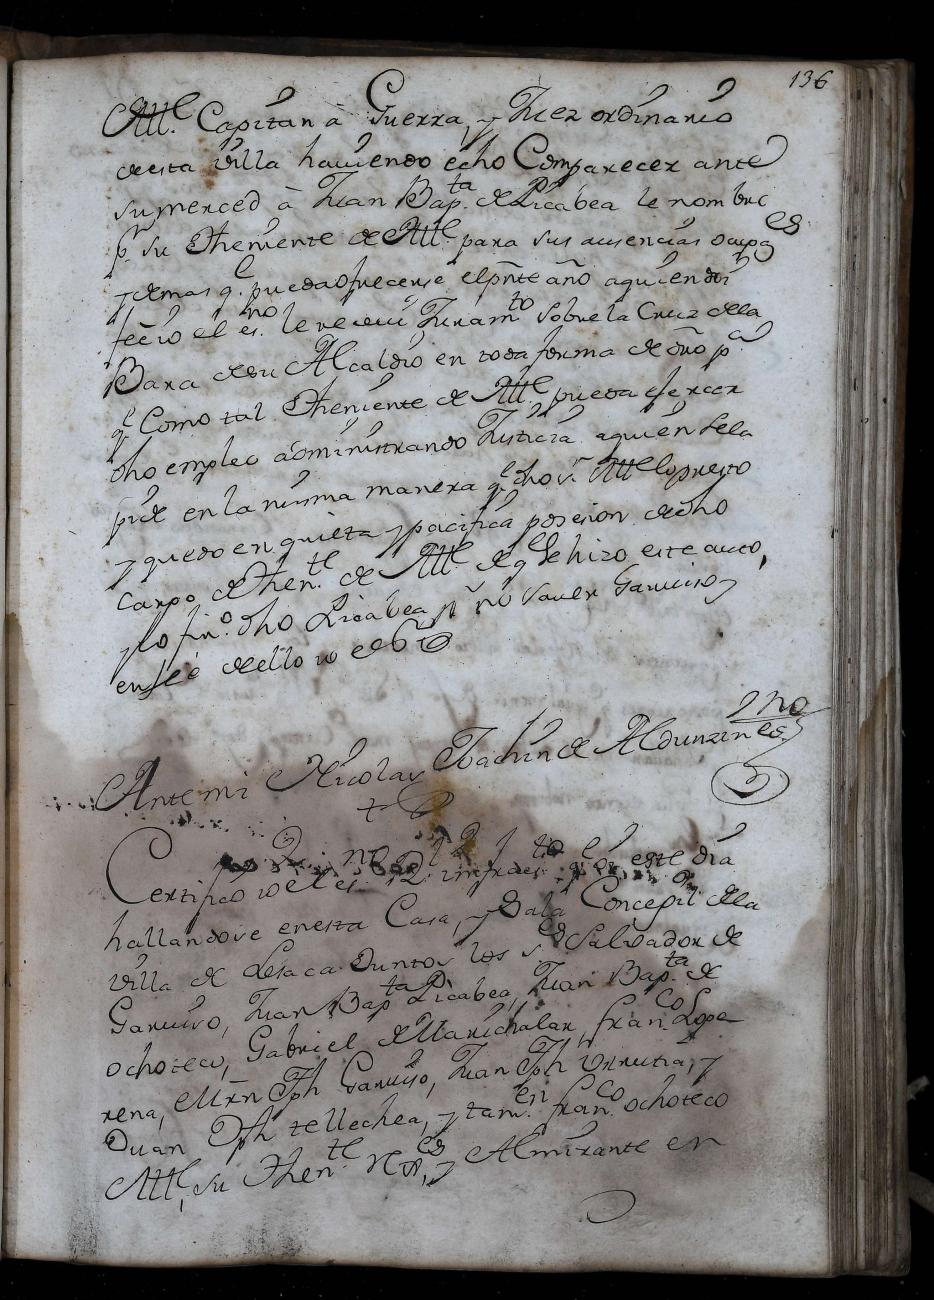 136
Allᵉ Capitan à Guerra, y Juez ordinario
desta Villa haviendo echo Comparecer ante
su merced à Juan Bapᵗᵃ de Picabea le nombró
pʳ su Theniente de Allᵉ para sus ausencias ocupᵒⁿᵉˢ
y demas qᵉ pueda ofrecerse el pñte año, a quien dho
feċho el esⁿᵒ le receví Juramᵗᵒ sobre la Cruz de la
Bara de su Alcaldio en toda forma de dro pᵃ
qᵉ Como tal Theniente de Allᵉ pueda ejercer
dho empleo administrando Justicia a quien se la
pide en la misma manera qᵉ dho sʳ Allᵉ lo presto
y quedo en quieta y pacifica posesion de dho
cargo de Thenᵗᵉ de Allᵉ de qᵉ se hizo este auto,
y lo firᵒ dho Picabea, y ño saver Garmiso,
en feé de ello io el esⁿᵒ
Ante mi Nicolas Joachin de Aldunzin esⁿᵒ
Certifico io el esⁿᵒ Rˡ infraesᵗᵒ qᵉ en este dia
hallandose en esta Casa, y Sala Concegil de la
Villa de Lesaca Juntos los sʳᵉˢ Salvador de
Garmiso, Juan Bapᵗᵃ Picabea, Juan Bapᵗᵃ de
ochoteco, Gabriel de Marichalar, franᶜᵒ Lope
rena, Mrn Jph Garmiso, Juan Jph Urrutia, y
Juan Jph tellechea, y tamᵉⁿ franᶜᵒ ochoteco
Allᵉ, su Thenᵗᵉ Rˢᵉˢ, y Almirante en